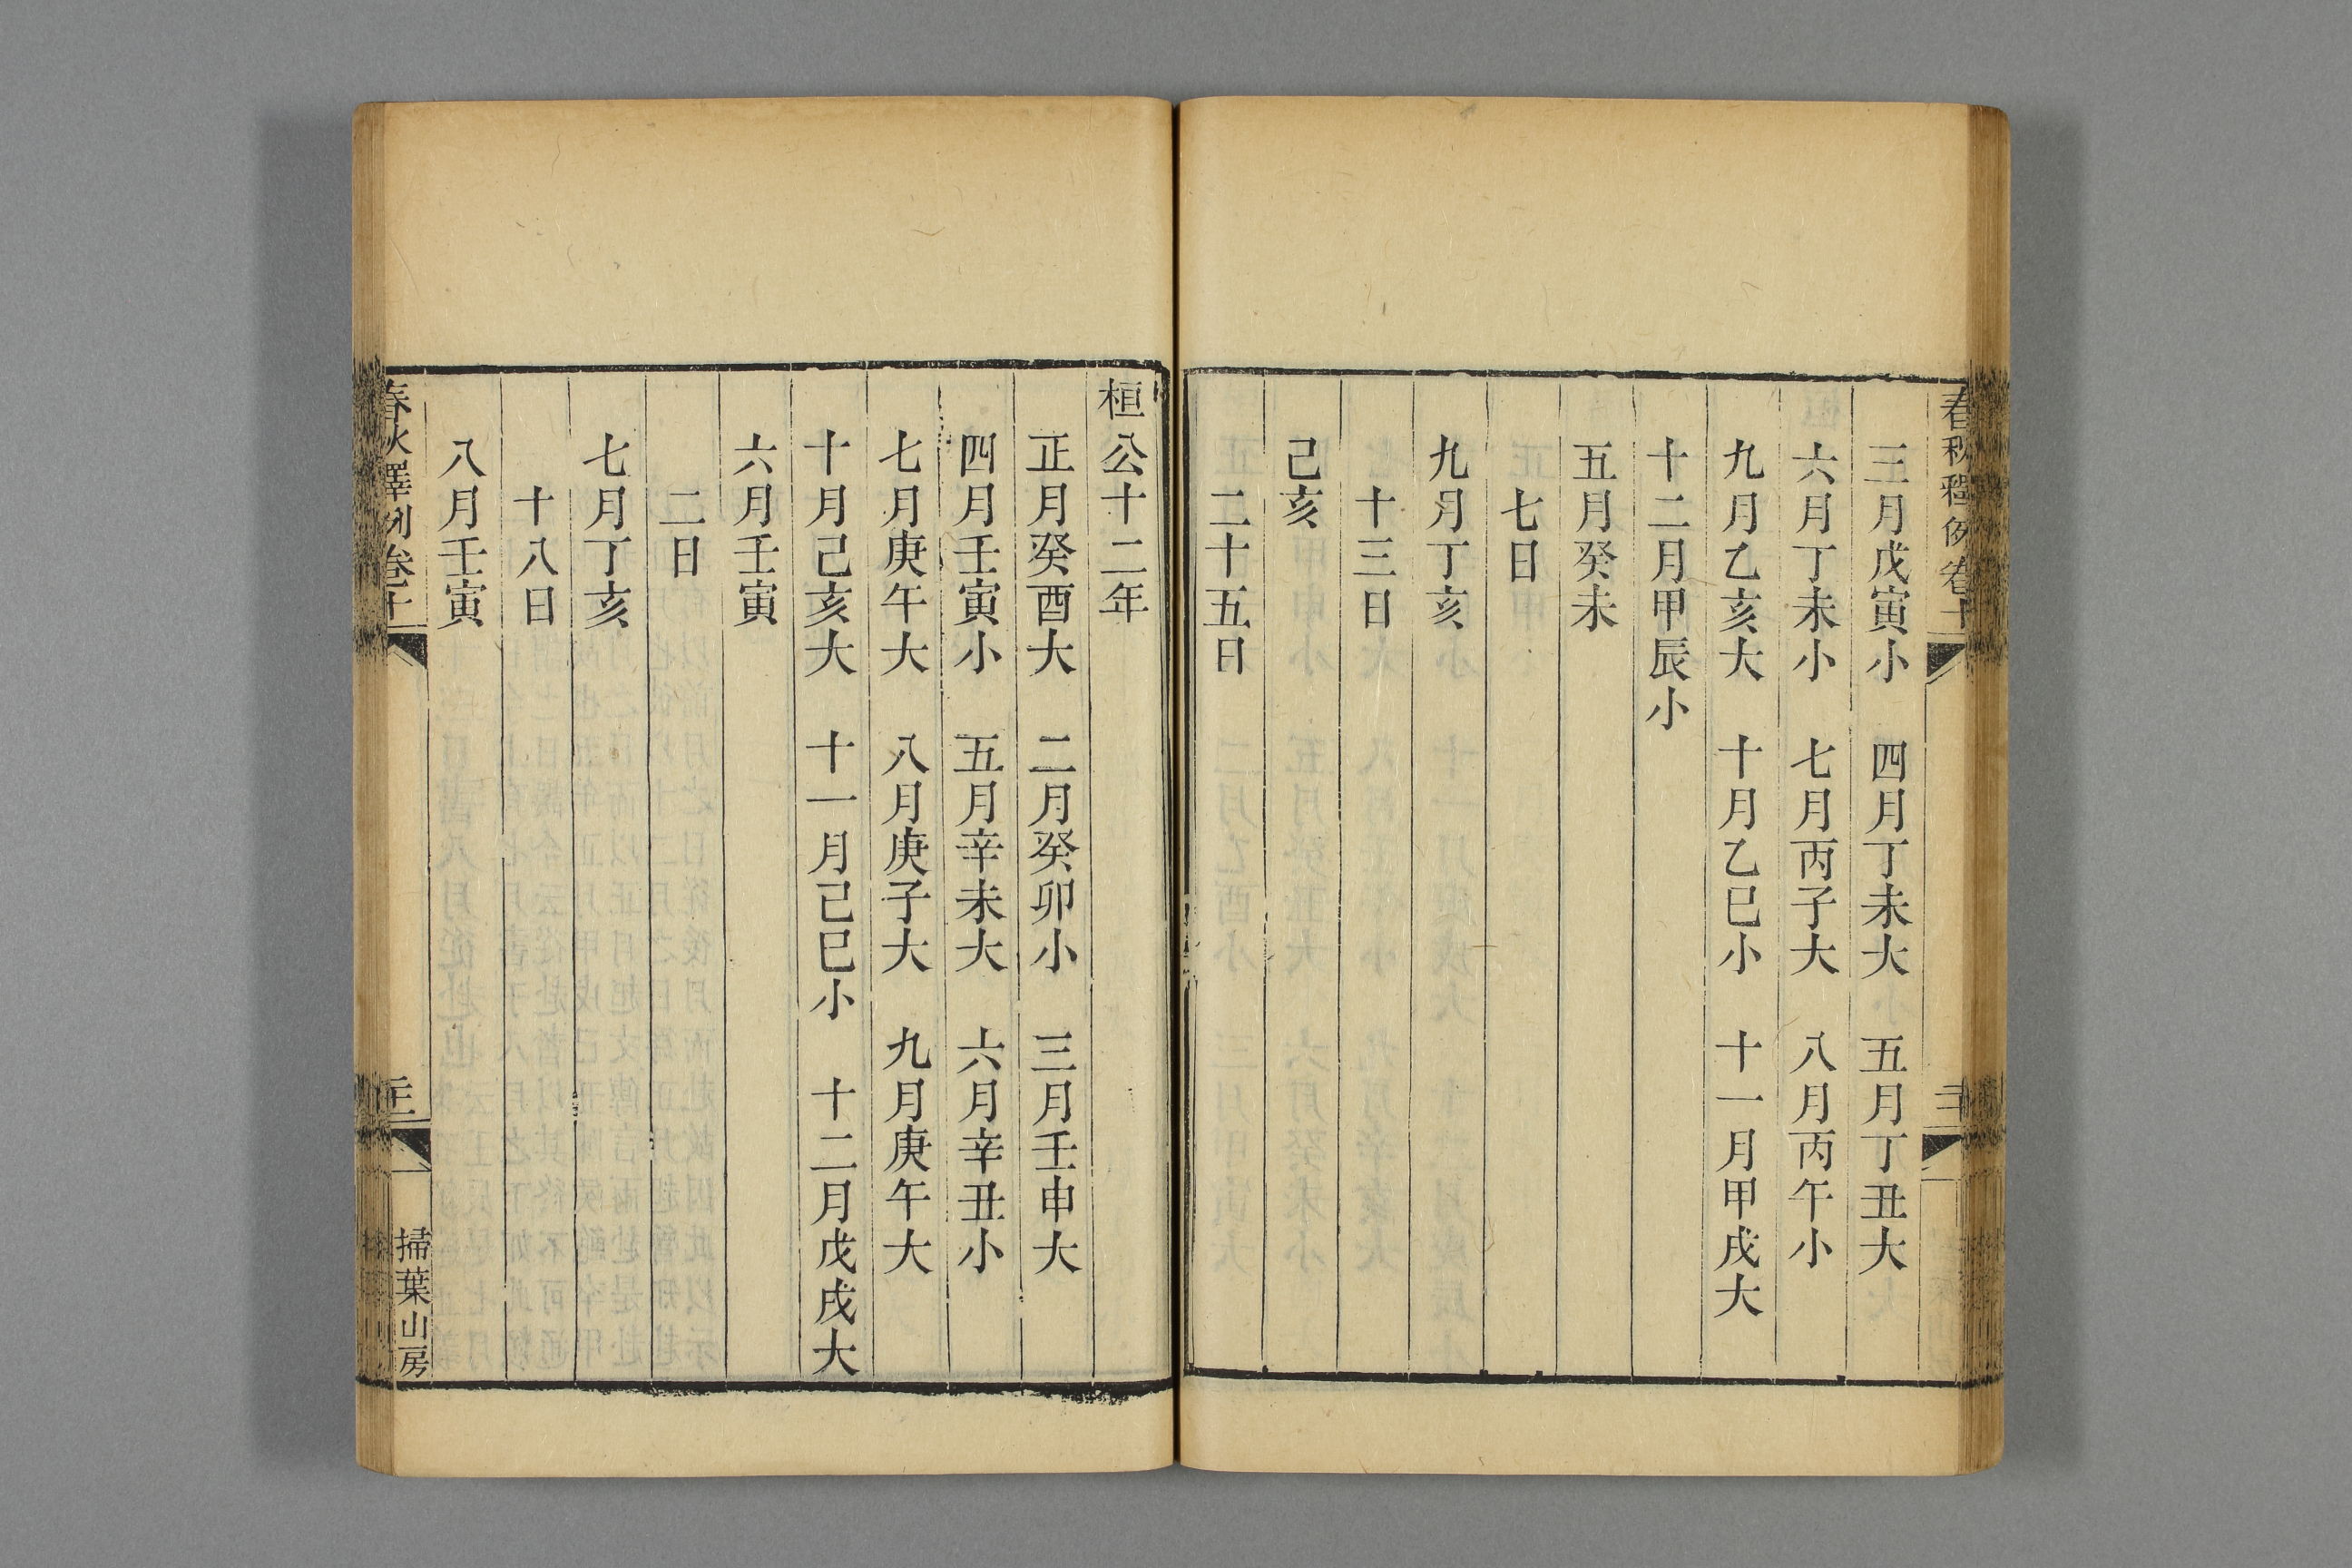 春秋釋例卷十
三月戊寅小 四月丁未大 五月丁丑大
六月丁未小 七月丙子大 八月丙午小
九月乙亥大 十月乙巳小 十一月甲戌大
十二月甲辰小
五月癸未
七日
九月丁亥
十三日
己亥
二十五日
桓公十二年
正月癸酉大 二月癸卯小 三月壬申大
四月壬寅小 五月辛未大 六月辛丑小
七月庚午大 八月庚子大 九月庚午大
十月己亥大 十一月己巳小 十二月戊戌大
六月壬寅
二日
七月丁亥
十八日
八月壬寅
春秋釋例卷十
掃葉山房